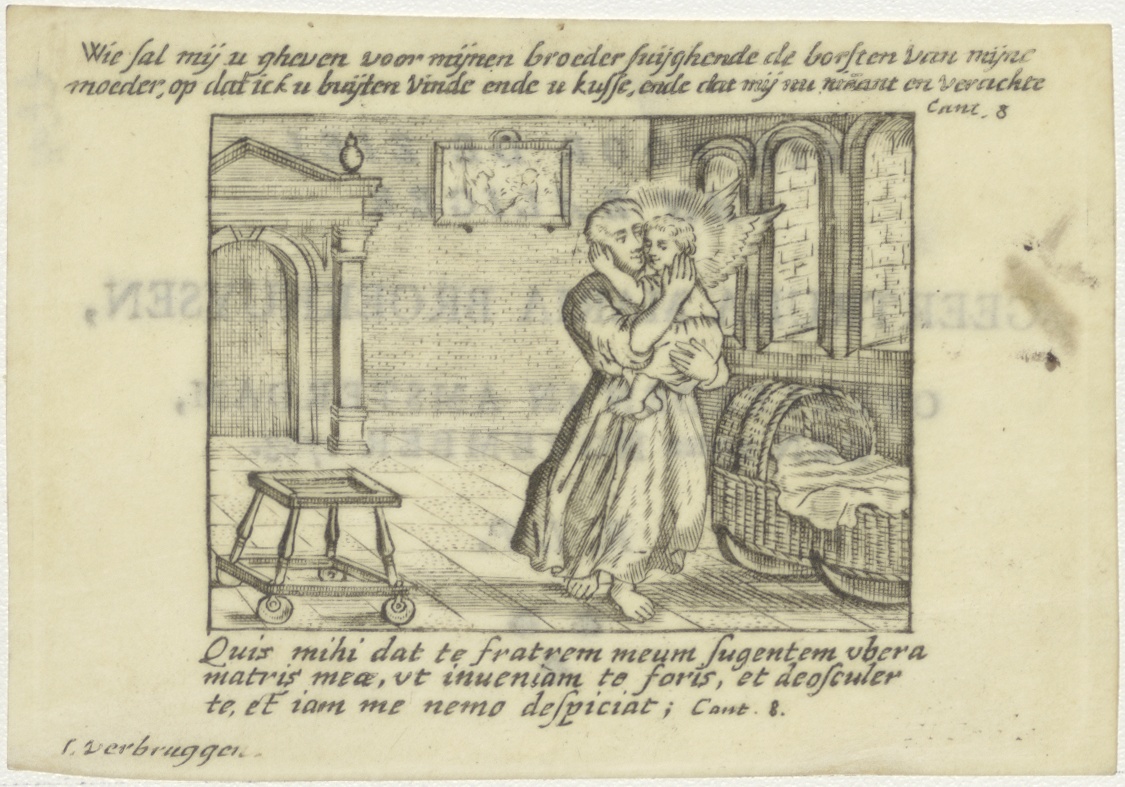 Wie sal mij u gheven voor mijnen broeder suijghende de borsten van mijne
moeder, op dat ick u buijten vinde ende u kusse, ende dat mij nu niemant en verachte
Cant. 8
GEERT A BROECKHUYSEN,
AMSTERDAM,
Quis mihi dat te fratrem meum sugentem vbera
matris meæ, vt inueniam te foris, et deosculer
te, et iam me nemo despiciat; Cant. 8.
verbruggen.